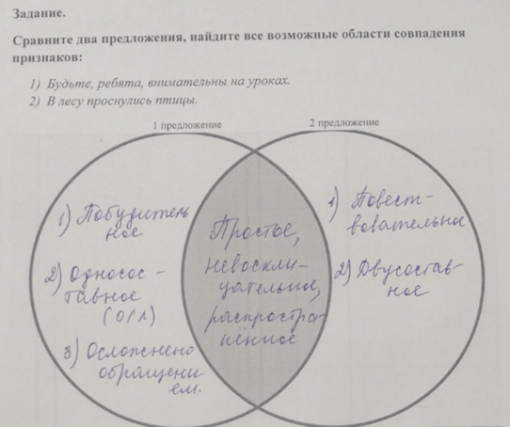 Задание.
Сравните два предложения, найдите все возможные области совпадения
признаков:
1) Будьте, ребята, внимательны на уроках.
2) В лесу проснулись птицы.
1 предложение
2 предложение
1) Побудитель
ное
2) Односос-
тавное
(О/Л)
3) Осложнено
обращени
ем.
Простое,
невоскли-
цательное,
распростра-
нённое
1) Повест-
вовательное
2) Двусостав-
ное